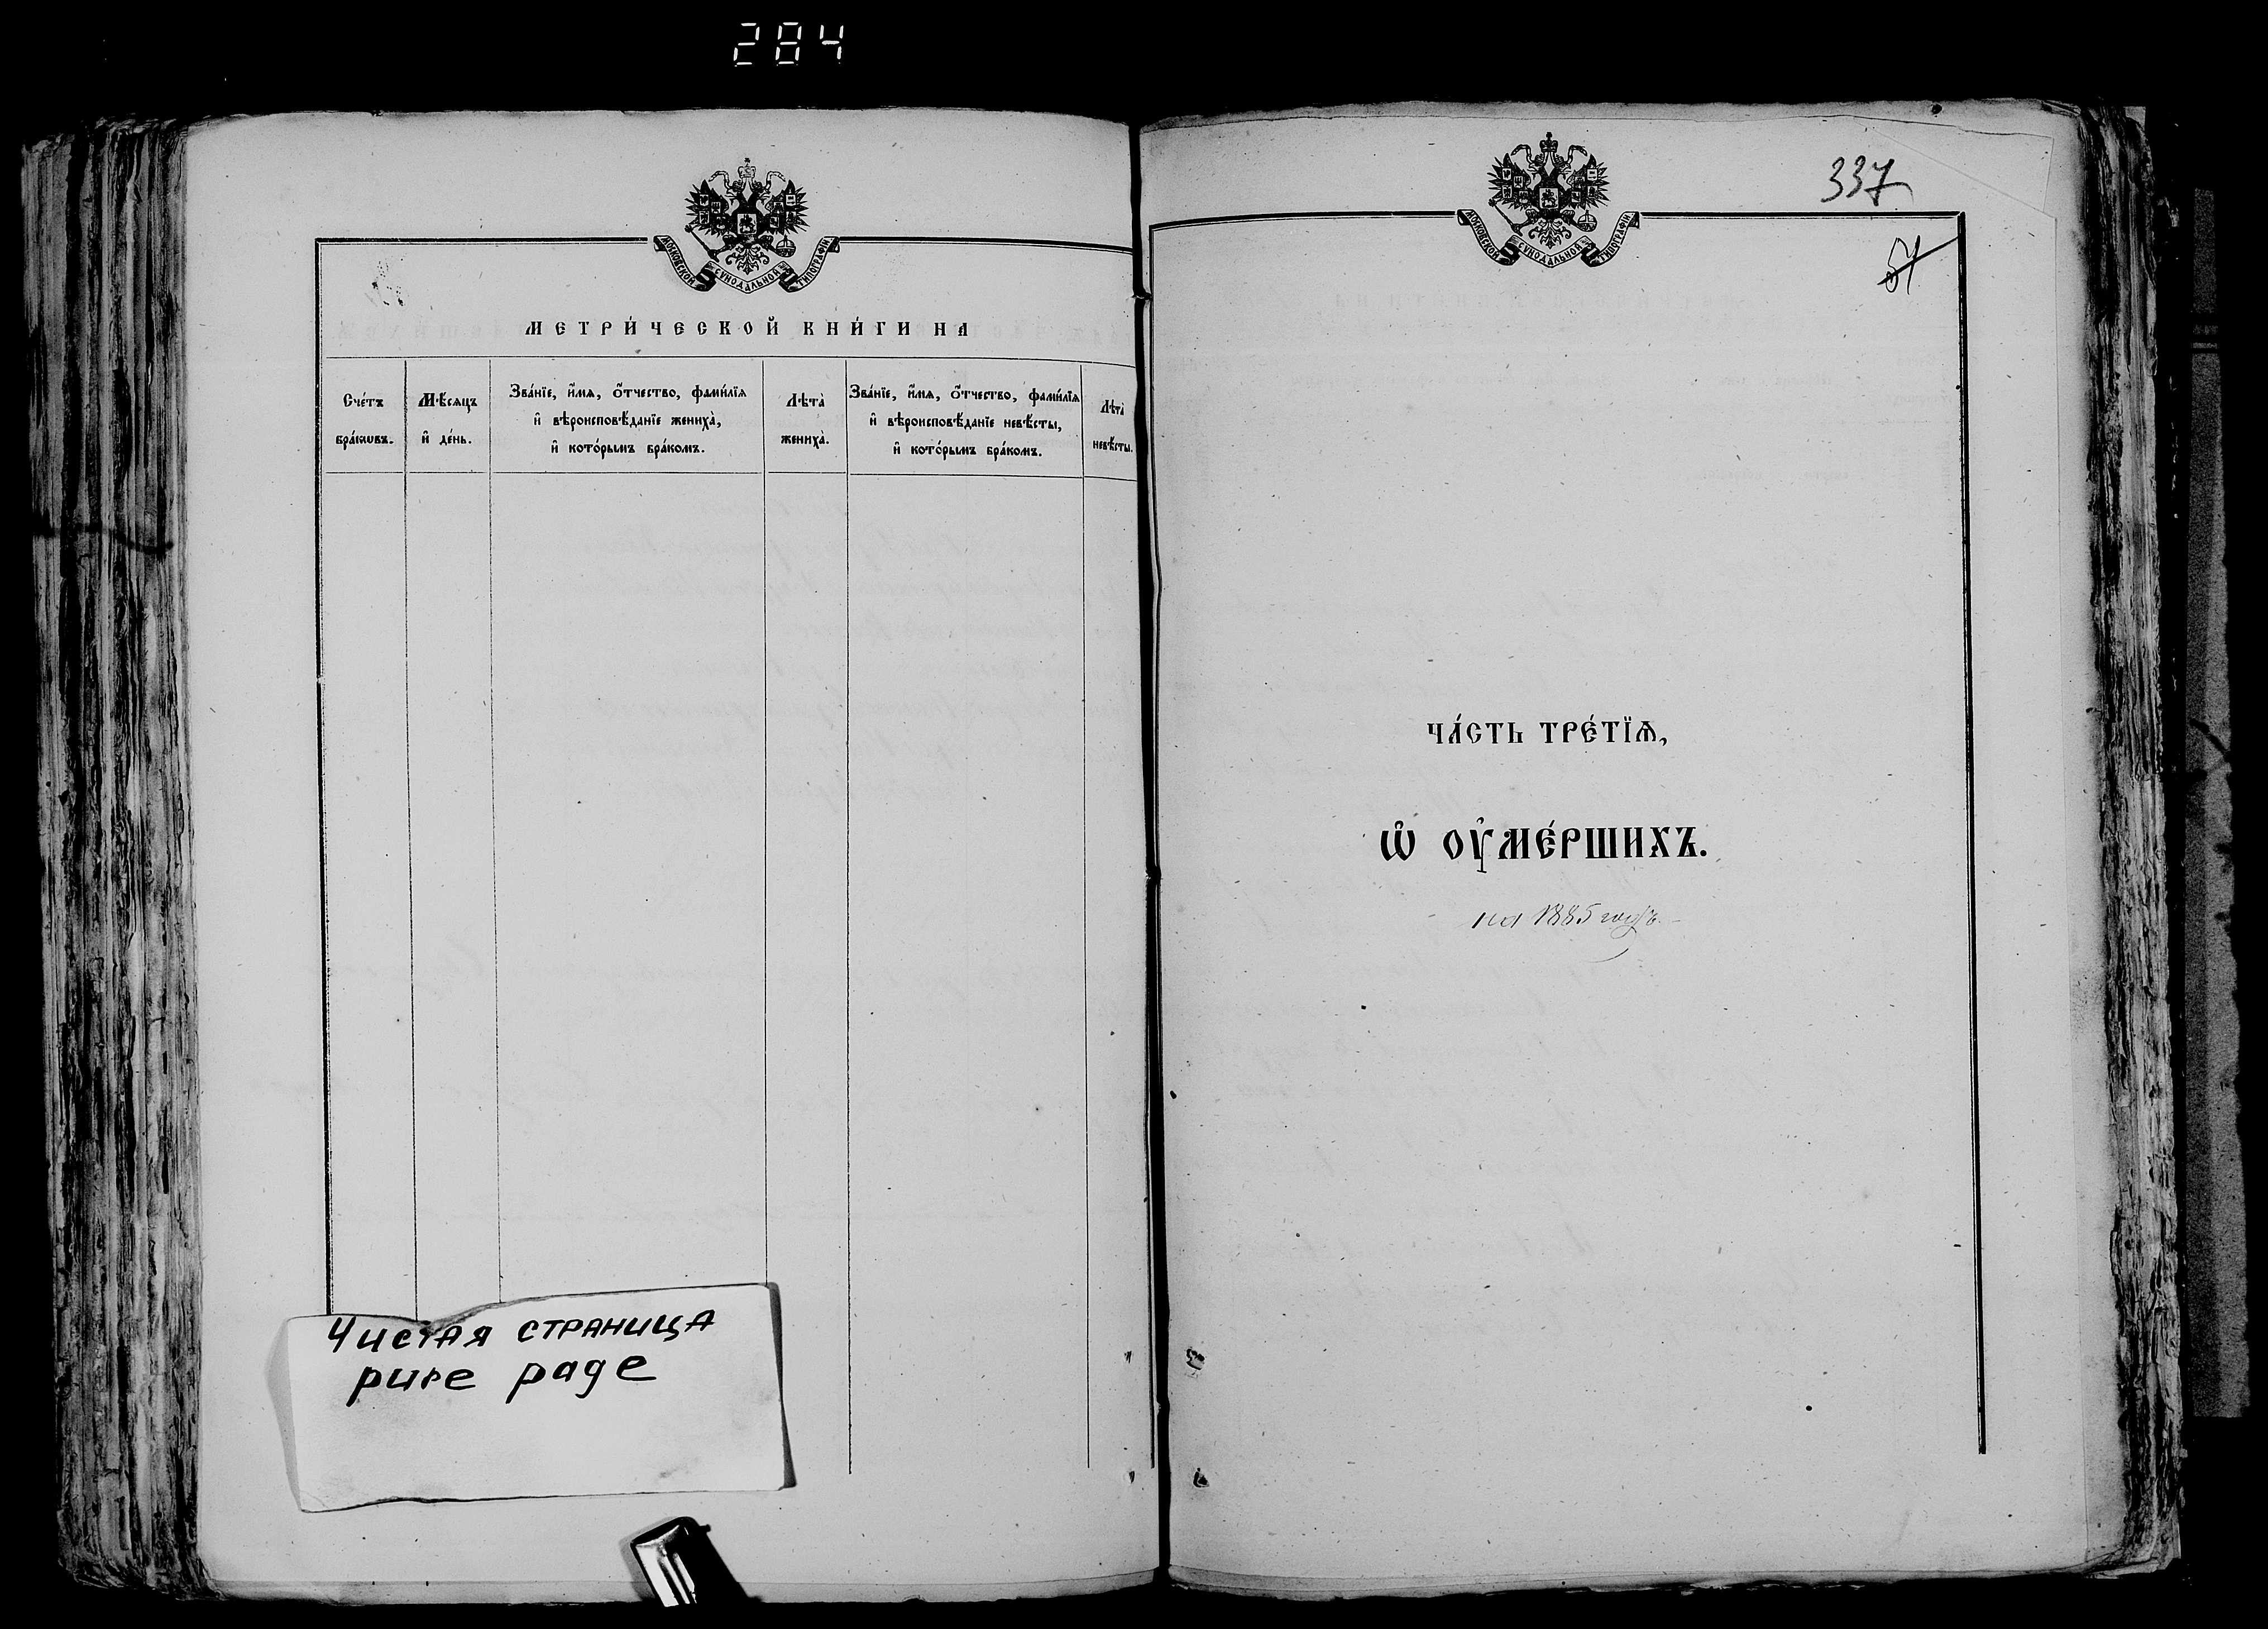 284
МОСКОВСКОЙ СУНОДАЛЬНОЙ ТИПОГРАФІИ
МЕТРИ́ЧЕСКОЙ КНИ́ГИ НА
Сче́тъ бра́кѡвъ.
Мѣ́сяцъ и҆ де́нь.
Зва́нїе, и҆́мѧ, ѻ҆́тчество, фами́лїѧ
и҆ вѣроисповѣ́данїе жениха̀,
и҆ кото́рымъ бра́комъ.
Лѣта̀ жениха̀.
Зва́нїе, и҆́мѧ, ѻ҆́тчество, фами́лїѧ
и҆ вѣроисповѣ́данїе невѣ́сты,
и҆ кото́рымъ бра́комъ.
Лѣта̀ невѣ́сты.
Чистая страница
pure page
337
МОСКОВСКОЙ СУНОДАЛЬНОЙ ТИПОГРАФІИ
51
ЧА́СТЬ ТРЕ́ТЇѦ,
Ѡ҆ ОУ҆МЕ́РШИХЪ.
на 1885 годъ.